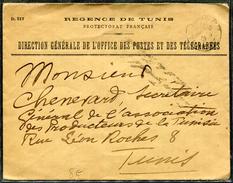 D. 317
RÉGENCE DE TUNIS
PROTECTORAT FRANÇAIS
DIRECTION GÉNÉRALE DE L'OFFICE DES POSTES ET DES TÉLÉGRAPHES
Monsieur
Chenevard, Secretaire
Général de l'association
des Producteurs de la Tunisie
Rue Léon Roches 8
Tunis